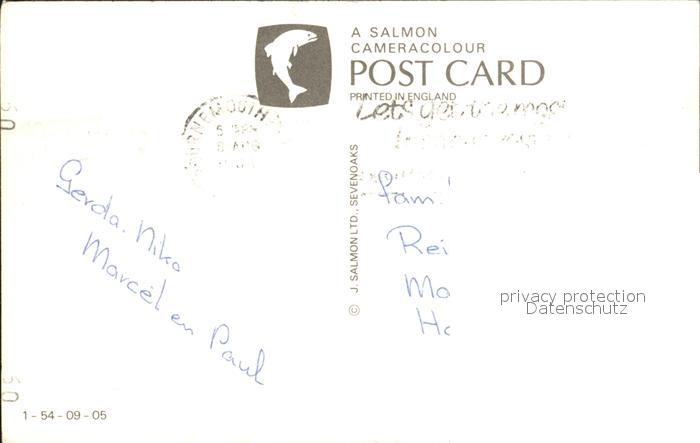 A SALMON
CAMERACOLOUR
POST CARD
PRINTED IN ENGLAND
Let's get
© J. SALMON LTD., SEVENOAKS
Gerda. Niko
Marcel en Paul
fam
Rei
Mo
Ho
privacy protection
Datenschutz
1 - 54 - 09 - 05